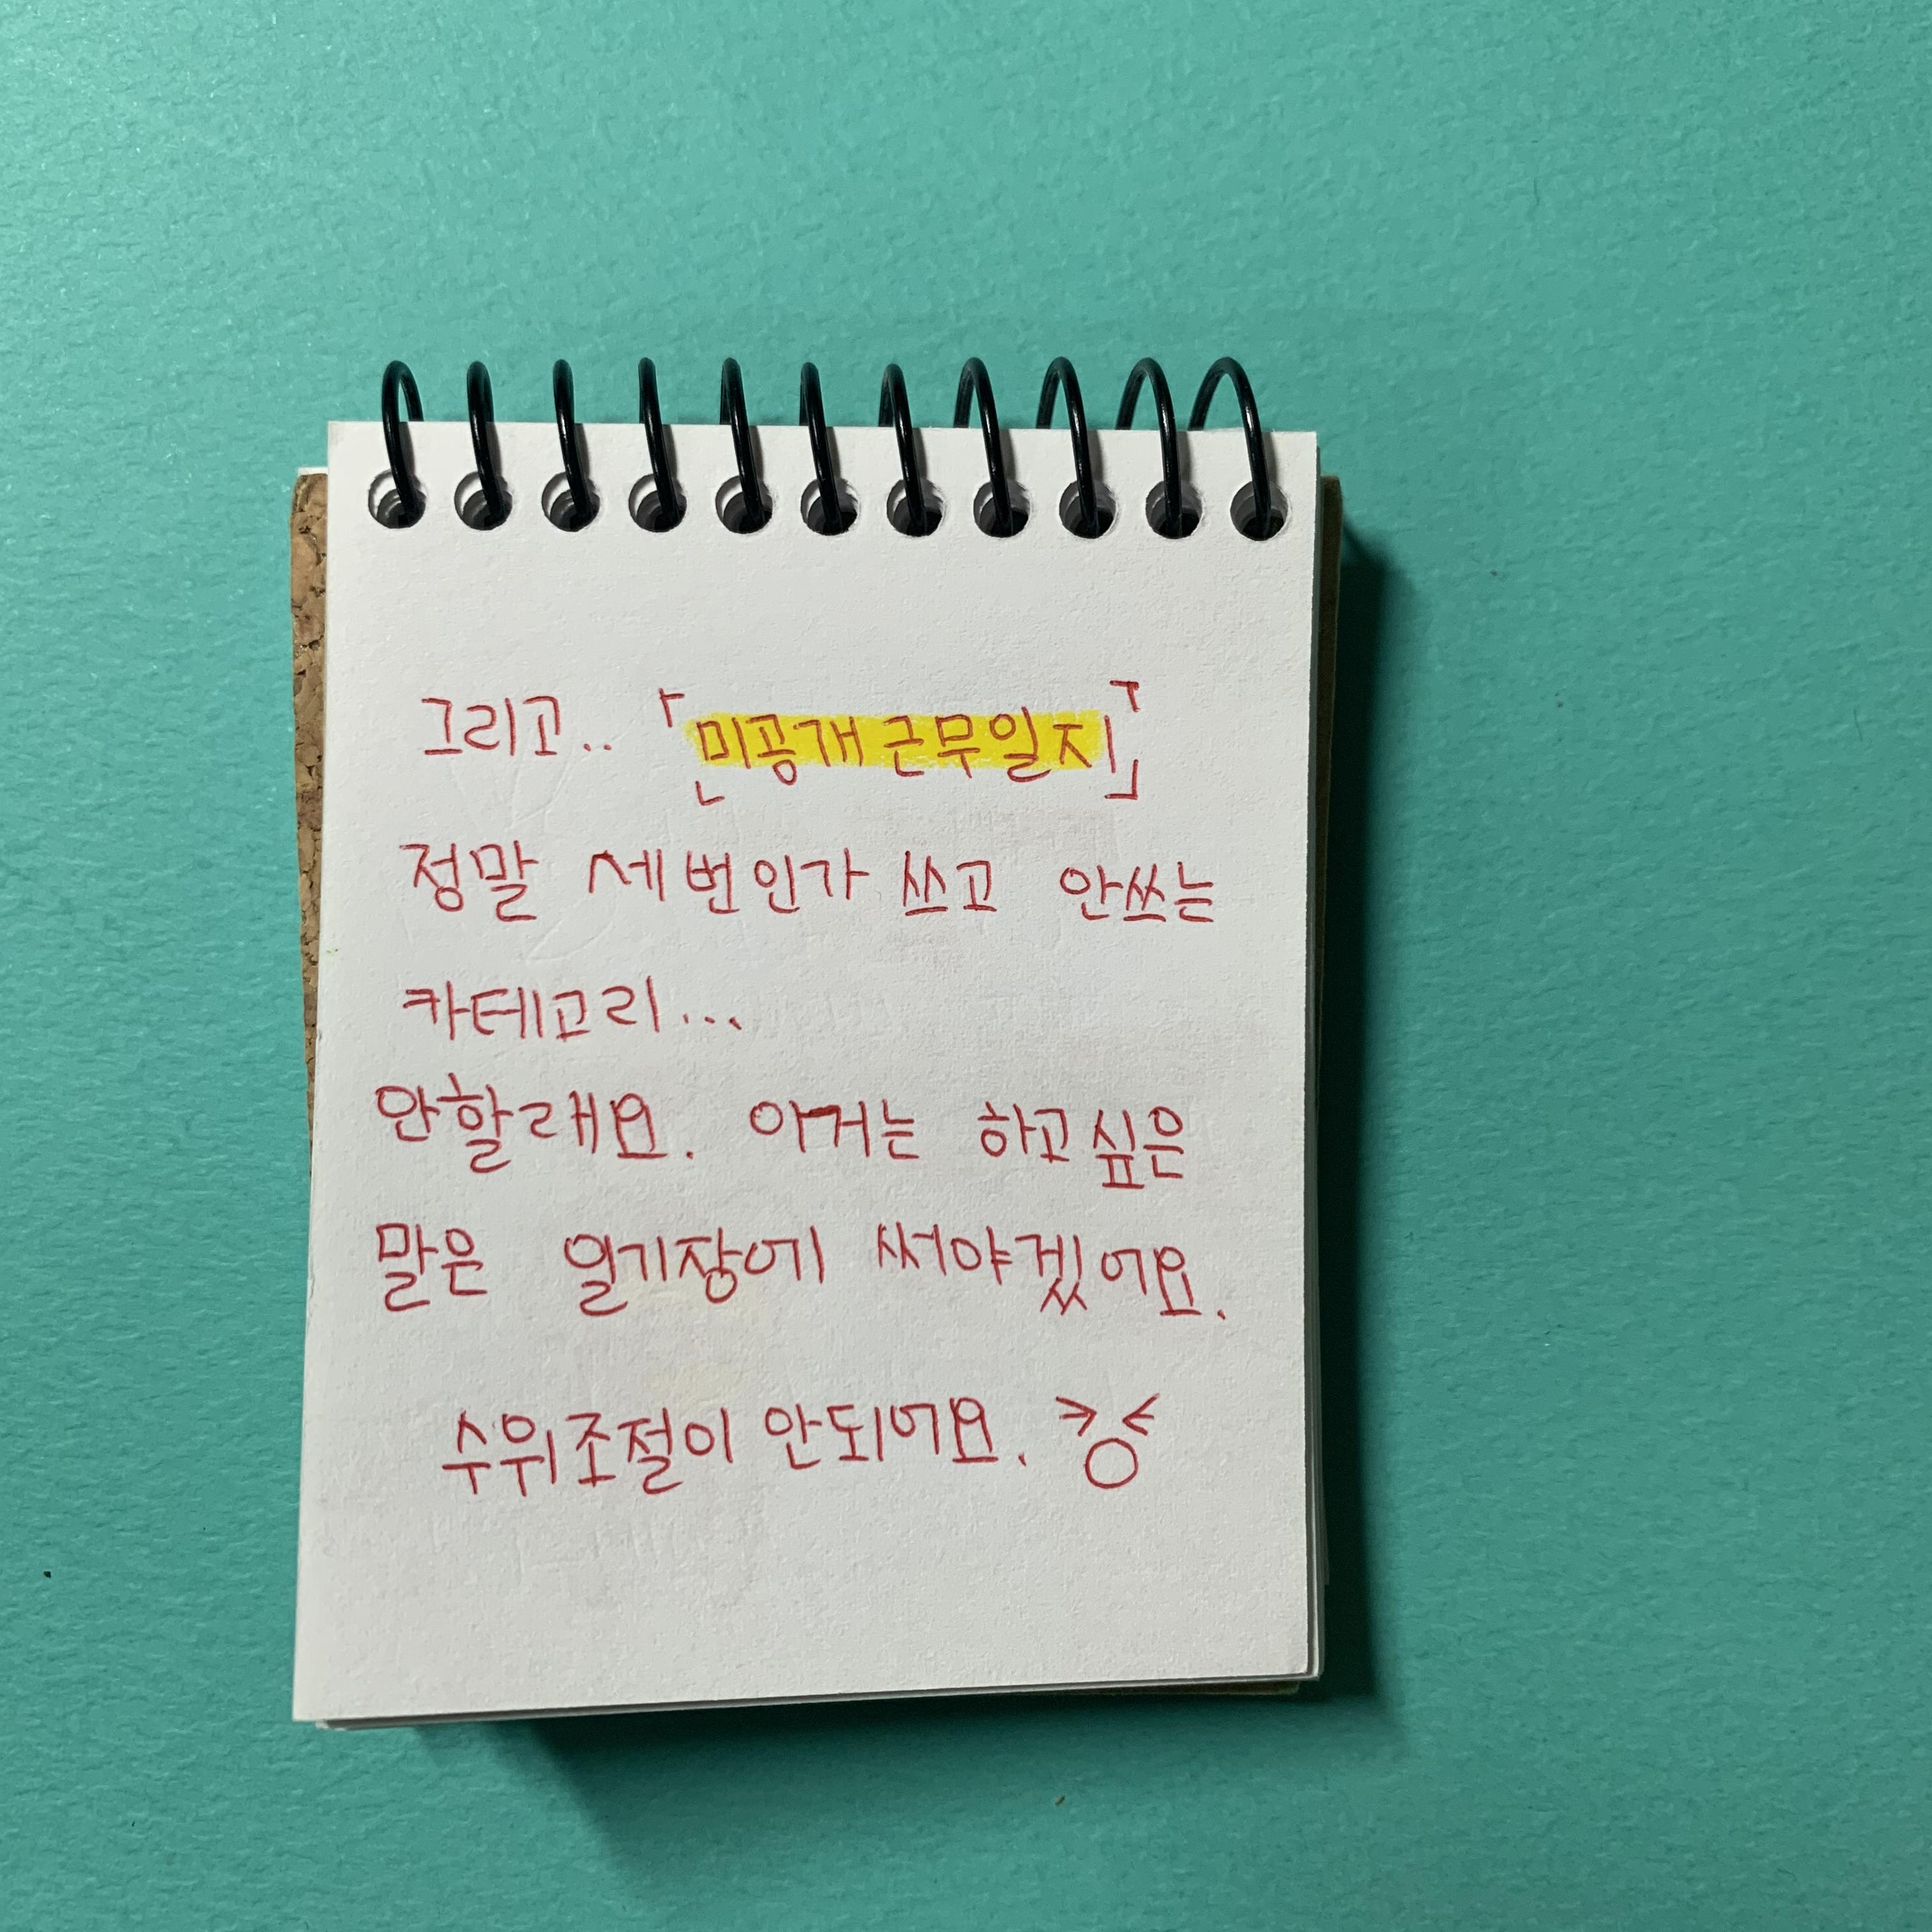 그리고.. 「미공개 근무일지」
정말 세번인가 쓰고 안쓰는
카테고리...
안할래요. 아거는 하고싶은
말은 일기장에 써야겠어요.
수위조절이 안되어요. >o<